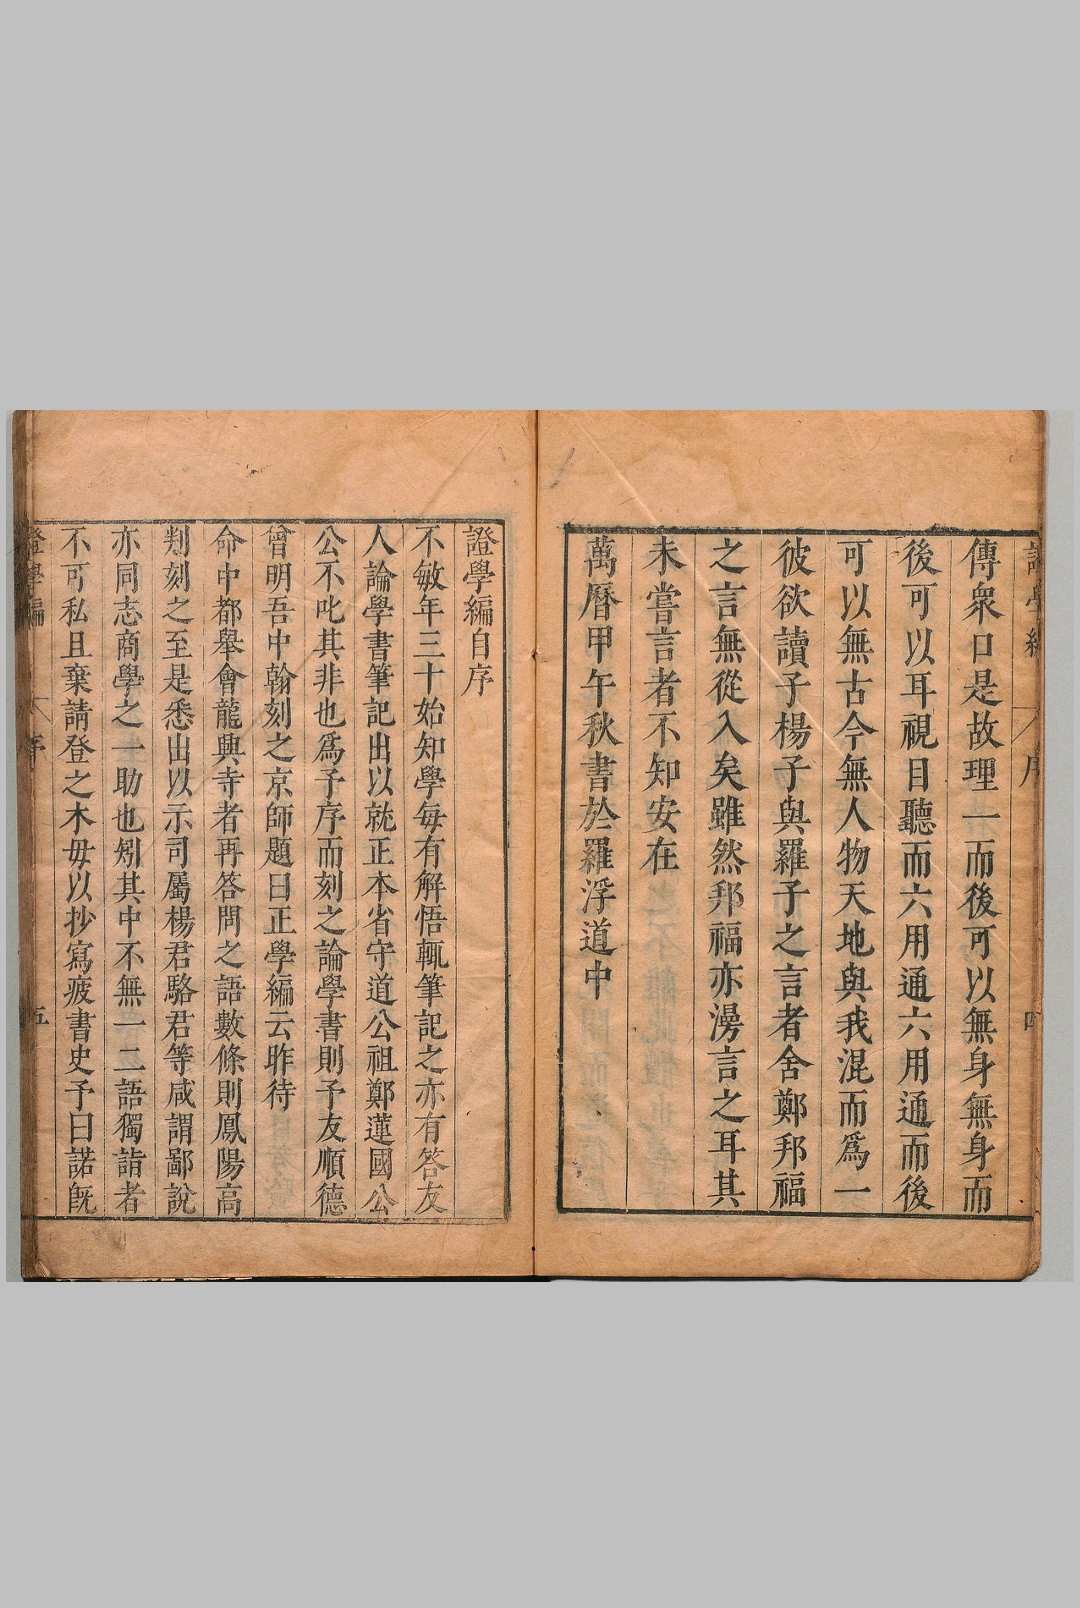 證學編 序 四
傳衆口是故理一而後可以無身無身而
後可以耳視目聽而六用通六用通而後
可以無古今無人物天地與我混而爲一
彼欲讀子楊子與羅子之言者舍鄭邦福
之言無從入矣雖然邦福亦漫言之耳其
未嘗言者不知安在
萬曆甲午秋書於羅浮道中
證學編自序
不敏年三十始知學每有解悟輒筆記之亦有答友
人論學書筆記出以就正本省守道公祖鄭蓮國公
公不叱其非也爲予序而刻之論學書則予友順德
曾明吾中翰刻之京師題曰正學編云昨待
命中都舉會龍興寺者再答問之語數條則鳳陽高
判刻之至是悉出以示司屬楊君駱君等咸謂鄙說
亦同志商學之一助也矧其中不無一二語獨詣者
不可私且棄請登之木毋以抄寫疲書史予曰諾旣
證學編 序 五